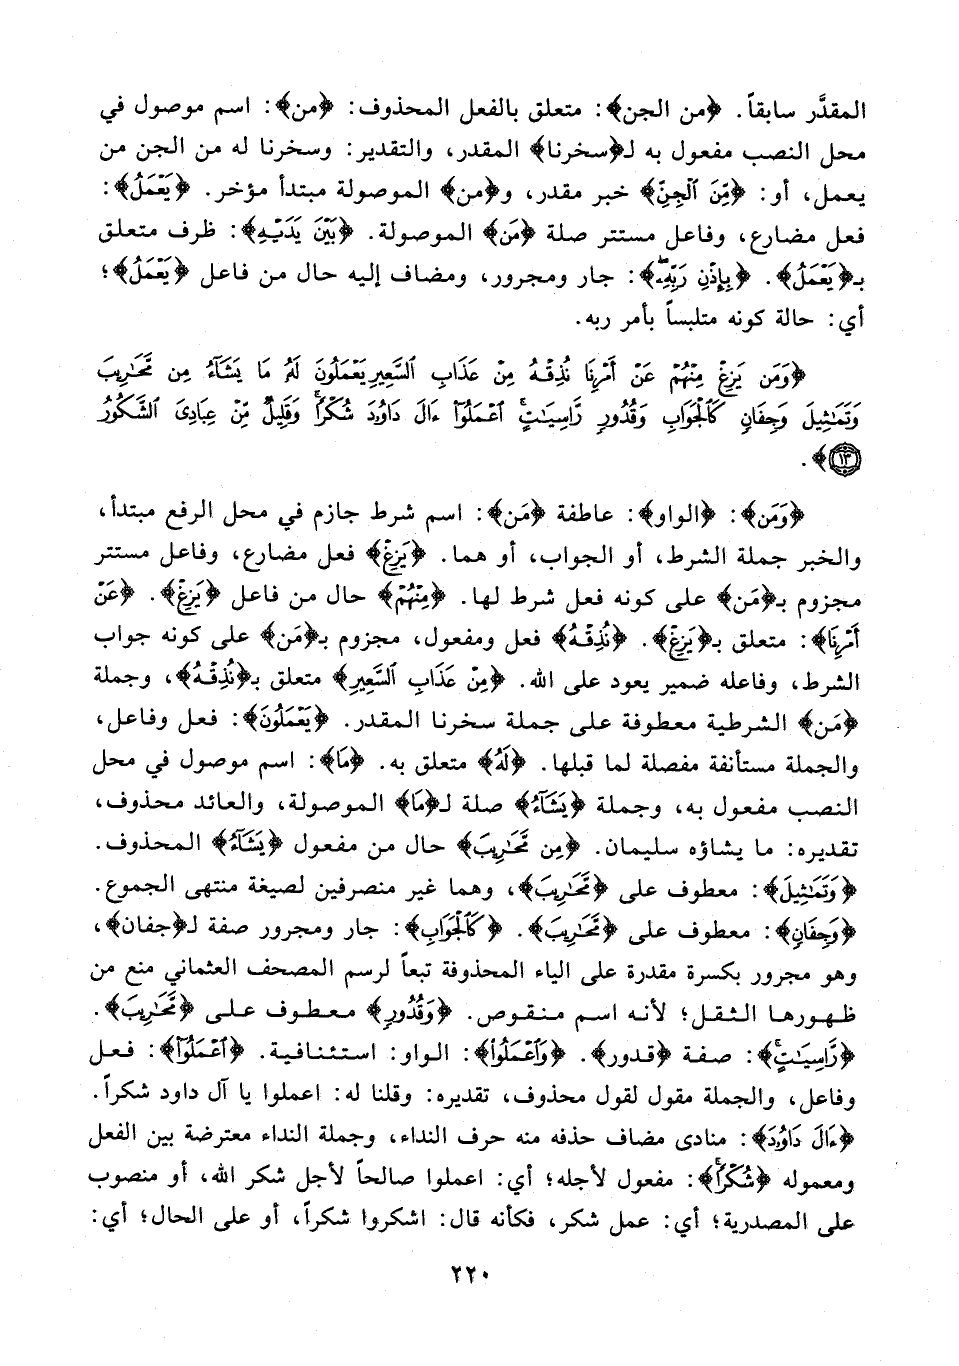 المقدَّر سابقاً. ﴿من الجن﴾: متعلق بالفعل المحذوف: ﴿من﴾: اسم موصول في
محل النصب مفعول به لـ﴿سخرنا﴾ المقدر، والتقدير: وسخرنا له من الجن من
يعمل، أو: ﴿مِّنَ ٱلْجِنِّ﴾ خبر مقدر، و﴿من﴾ الموصولة مبتدأ مؤخر. ﴿يَعْمَلُ﴾:
فعل مضارع، وفاعل مستتر صلة ﴿مَن﴾ الموصولة. ﴿بَيْنَ يَدَيْهِ﴾: ظرف متعلق
بـ﴿يَعْمَلُ﴾. ﴿بِإِذْنِ رَبِّهِۦ﴾: جار ومجرور، ومضاف إليه حال من فاعل ﴿يَعْمَلُ﴾؛
أي: حالة كونه متلبساً بأمر ربه.
﴿وَمَن يَزِغْ مِنْهُمْ عَنْ أَمْرِنَا نُذِقْهُ مِنْ عَذَابِ ٱلسَّعِيرِ يَعْمَلُونَ لَهُۥ مَا يَشَآءُ مِن مَّحَـٰرِيبَ
وَتَمَـٰثِيلَ وَجِفَانٍ كَٱلْجَوَابِ وَقُدُورٍ رَّاسِيَـٰتٍ ۚ ٱعْمَلُوٓا۟ ءَالَ دَاوُۥدَ شُكْرًا ۚ وَقَلِيلٌ مِّنْ عِبَادِىَ ٱلشَّكُورُ
﴿١٣﴾﴾.
﴿وَمَن﴾: ﴿الواو﴾: عاطفة ﴿مَن﴾: اسم شرط جازم في محل الرفع مبتدأ،
والخبر جملة الشرط، أو الجواب، أو هما. ﴿يَزِغْ﴾ فعل مضارع، وفاعل مستتر
مجزوم بـ﴿مَن﴾ على كونه فعل شرط لها. ﴿مِنْهُمْ﴾ حال من فاعل ﴿يَزِغْ﴾. ﴿عَنْ
أَمْرِنَا﴾: متعلق بـ﴿يَزِغْ﴾. ﴿نُذِقْهُ﴾ فعل ومفعول، مجزوم بـ﴿مَن﴾ على كونه جواب
الشرط، وفاعله ضمير يعود على الله. ﴿مِنْ عَذَابِ ٱلسَّعِيرِ﴾ متعلق بـ﴿نُذِقْهُ﴾، وجملة
﴿مَن﴾ الشرطية معطوفة على جملة سخرنا المقدر. ﴿يَعْمَلُونَ﴾: فعل وفاعل،
والجملة مستأنفة مفصلة لما قبلها. ﴿لَهُ﴾ متعلق به. ﴿مَا﴾: اسم موصول في محل
النصب مفعول به، وجملة ﴿يَشَآءُ﴾ صلة لـ﴿مَا﴾ الموصولة، والعائد محذوف،
تقديره: ما يشاؤه سليمان. ﴿مِن مَّحَـٰرِيبَ﴾ حال من مفعول ﴿يَشَآءُ﴾ المحذوف.
﴿وَتَمَـٰثِيلَ﴾: معطوف على ﴿مَّحَـٰرِيبَ﴾، وهما غير منصرفين لصيغة منتهى الجموع.
﴿وَجِفَانٍ﴾: معطوف على ﴿مَّحَـٰرِيبَ﴾. ﴿كَٱلْجَوَابِ﴾: جار ومجرور صفة لـ﴿جفان﴾،
وهو مجرور بكسرة مقدرة على الياء المحذوفة تبعاً لرسم المصحف العثماني منع من
ظهورها الثقل؛ لأنه اسم منقوص. ﴿وَقُدُورٍ﴾ معطوف على ﴿مَّحَـٰرِيبَ﴾.
﴿رَّاسِيَـٰتٍ ۚ﴾: صفة ﴿قدور﴾. ﴿وَٱعْمَلُوا۟﴾: الواو: استئنافية. ﴿ٱعْمَلُوٓا۟﴾: فعل
وفاعل، والجملة مقول لقول محذوف، تقديره: وقلنا له: اعملوا يا آل داود شكراً.
﴿ءَالَ دَاوُۥدَ﴾: منادى مضاف حذفه منه حرف النداء، وجملة النداء معترضة بين الفعل
ومعموله ﴿شُكْرًا ۚ﴾: مفعول لأجله؛ أي: اعملوا صالحاً لأجل شكر الله، أو منصوب
على المصدرية؛ أي: عمل شكر، فكأنه قال: اشكروا شكراً، أو على الحال؛ أي:
٢٢٠